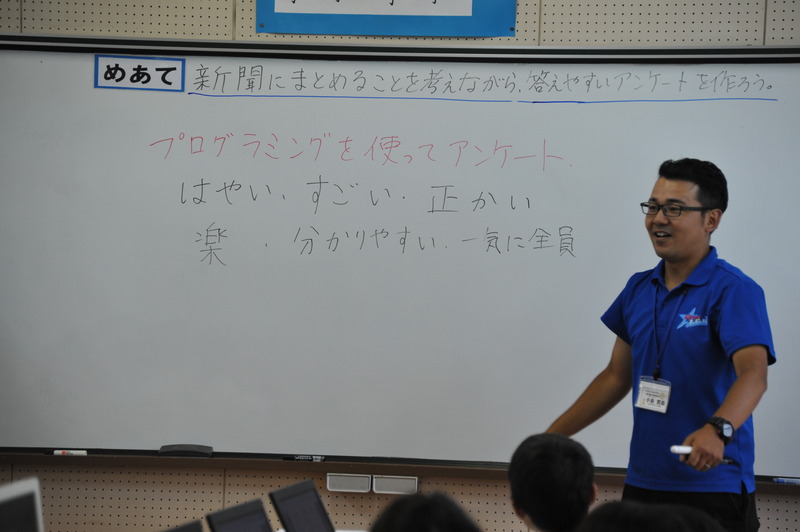 めあて 新聞にまとめることを考えながら、答えやすいアンケートを作ろう。
プログラミングを使ってアンケート.
はやい、すごい・正かい
楽・分かりやすい・一気に全員